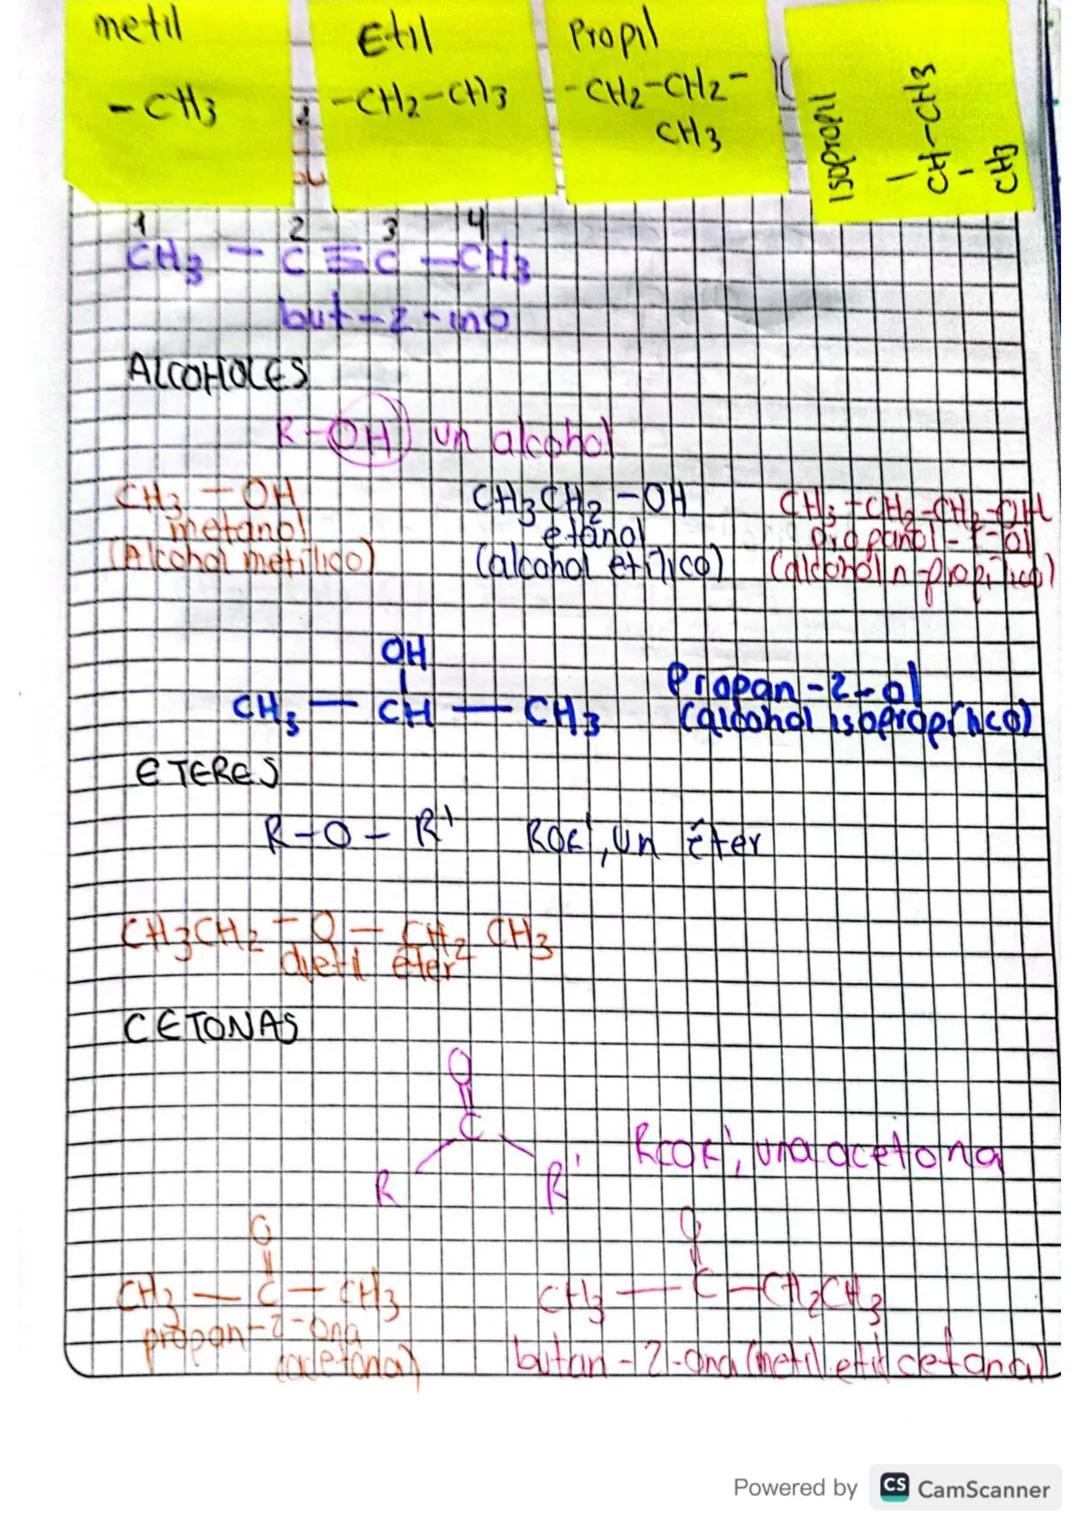 metil
Etil
Propil
Isopropil
-CH3
-CH2-CH3
-CH2-CH2-
CH3
CH-CH3
CH3
1 2 3 4
CH3 - C ≡ C - CH3
but-2-ino
ALCOHOLES
R-OH un alcohol
CH3 - OH
metanol
(Alcohol metílico)
CH3CH2 - OH
etanol
(alcohol etílico)
CH3-CH2-CH2-OH
propanol-1-ol
(alcohol n-propílico)
OH
CH3 — CH — CH3
Propan-2-ol
(alcohol isopropílico)
ETERES
R-O-R' ROR', un éter
CH3CH2 - O - CH2 CH3
dietil éter
CETONAS
O
C
R R'
RCOR', una acetona
O
CH3 — C — CH3
propan-2-ona
(acetona)
O
CH3 — C — CH2CH3
butan-2-ona (metil etil cetona)
Powered by CS CamScanner